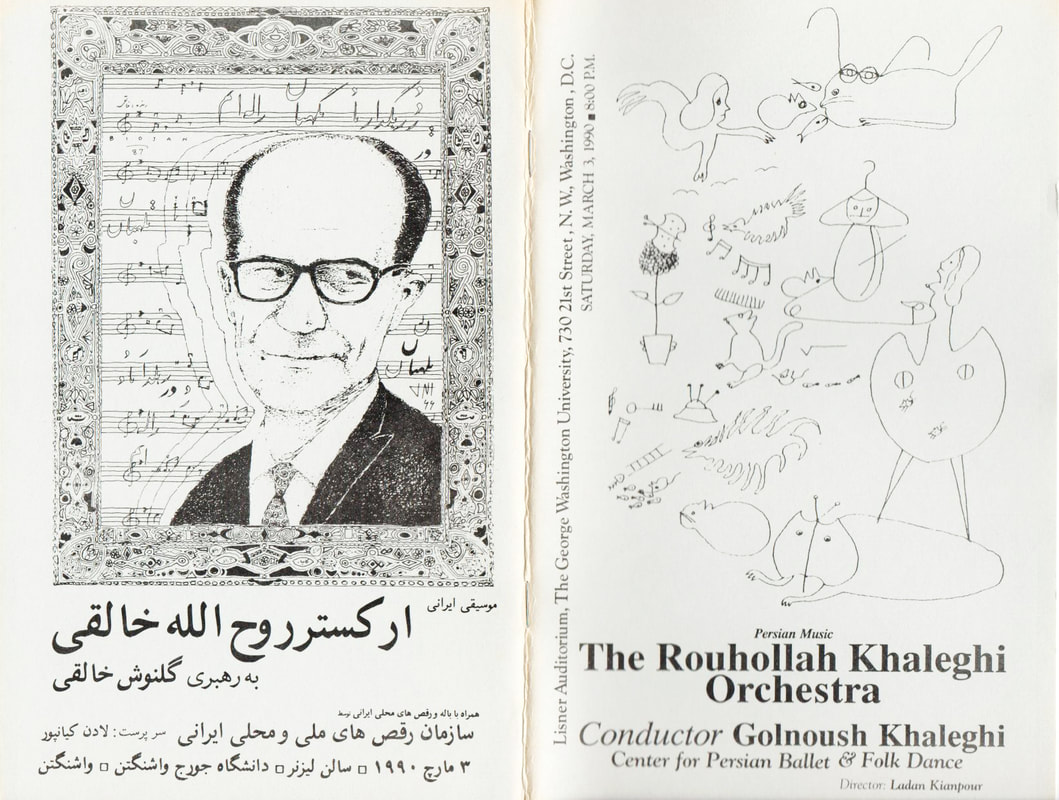 موسیقی ایرانی
ارکستر روح الله خالقی
به رهبری گلنوش خالقی
همراه با باله و رقص های محلی ایرانی توسط
سازمان رقص های ملی و محلی ایرانی سر پرست: لادن کیانپور
۳ مارچ ۱۹۹۰ □ سالن لیزنر □ دانشگاه جورج واشنگتن □ واشنگتن
Lisner Auditorium, The George Washington University, 730 21st Street, N.W., Washington, D.C.
SATURDAY, MARCH 3, 1990 ■ 8:00 P.M.
Persian Music
The Rouhollah Khaleghi
Orchestra
Conductor Golnoush Khaleghi
Center for Persian Ballet & Folk Dance
Director: Ladan Kianpour